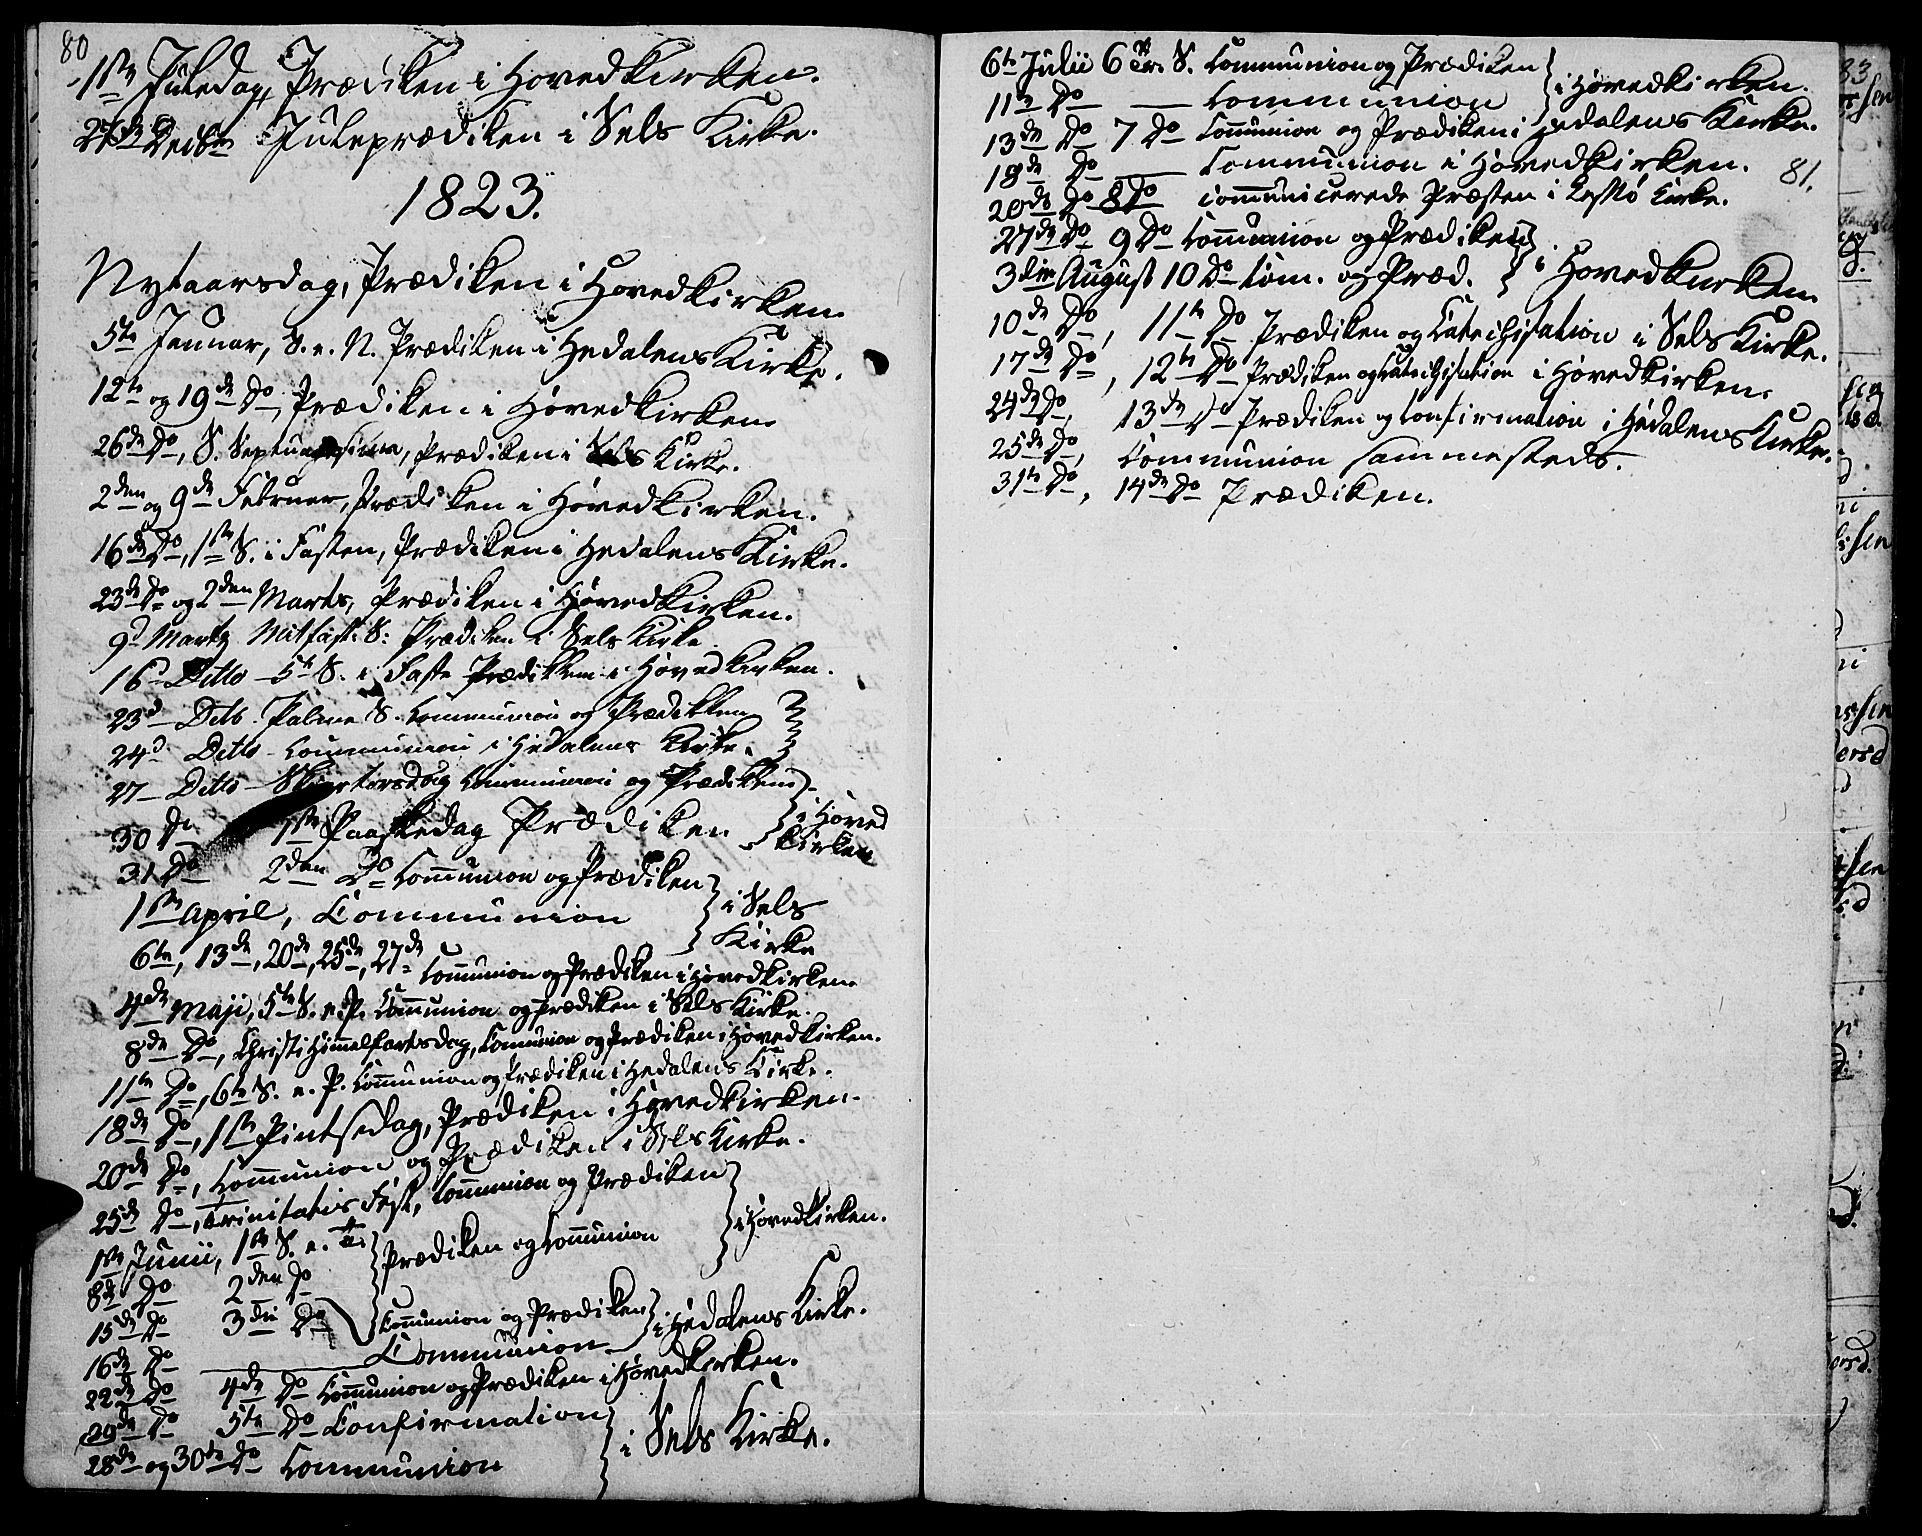 80
1ste Juledag, Prædiken i Hovedkirken.
27de Decbr Juleprædiken i Sels Kirke.
1823.
Nytaarsdag, Prædiken i Hovedkirken.
5te Januar, S. e. N. Prædiken i Hedalens Kirke.
12te og 19de Do, Prædiken i Hovedkirken.
26de Do, S. Septuagesima, Prædiken i Sels Kirke.
2den og 9de Februar, Prædiken i Hovedkirken.
16de Do, 1ste S. i Fasten, Prædiken i Hedalens Kirke.
23de Do og 2den Marts, Prædiken i Hovedkirken.
9d Marts Mitfaste S: Prædiken i Sels Kirke
16d Ditto 5te S. i Faste Prædikken i Hovedkirken.
23d Dito. Palme S. Communion og Prædikken
24d. Ditto Communion i Hedalens Kirke.
27 Ditto Skiertorsdag Communion og Prædikken
30 Do 1ste Paaskedag Prædiken } i Hoved
kirken
31 Do 2den Do Communion og Prædiken
1ste April, Communion } i Sels
Kirke
6te, 13de, 20de, 25de, 27de Communion og Prædiken i Hovedkirken.
4de Maji, 5te S. e. P. Communion og Prædiken i Sels Kirke.
8de Do, Christi Himmelfartsdag, Communion og Prædiken i Hovedkirken.
11te Do, 6te S. e. P. Communion og Prædiken i Hedalens Kirke.
18de Do, 1ste Pintsedag, Prædiken i Hovedkirken.
20de Do, Communion og Prædiken i Sels Kirke.
25de Do, Trinitatis Fest, Communion og Prædiken
1ste Junii, 1ste S. e. Tr. } Prædiken og Communion } i Hovedkirken.
8de Do 2den Do
15de Do 3die Do Communion og Prædiken } i Hedalens Kirke.
16de Do Communion
22de Do 4de Do Communion og Prædiken i Hovedkirken.
29de Do 5te Do Confirmation
28de og 30te Do Communion } i Sels Kirke.
6te Julii 6 Tr. S. Communion og Prædiken
11te Do Communion } i Hovedkirken.
13de Do 7 Do Communion og Prædiken i Hedalens Kirke.
18de Do Communion i Hovedkirken.
81.
20de Do 8 Do communicerede Præsten i Kirke.
27de Do 9 Do Communion og Prædiken
3die August 10 Do Com. og Præd. } i Hovedkirken.
10de Do, 11te Do Prædiken og Catechisation i Sels Kirke.
17de Do, 12te Do Prædiken og Catechisation i Hovedkirken.
24de Do, 13de Do Prædiken og Confirmation i Hedalens Kirke.
25de Do, Communion sammesteds.
31te Do, 14de Do Prædiken.